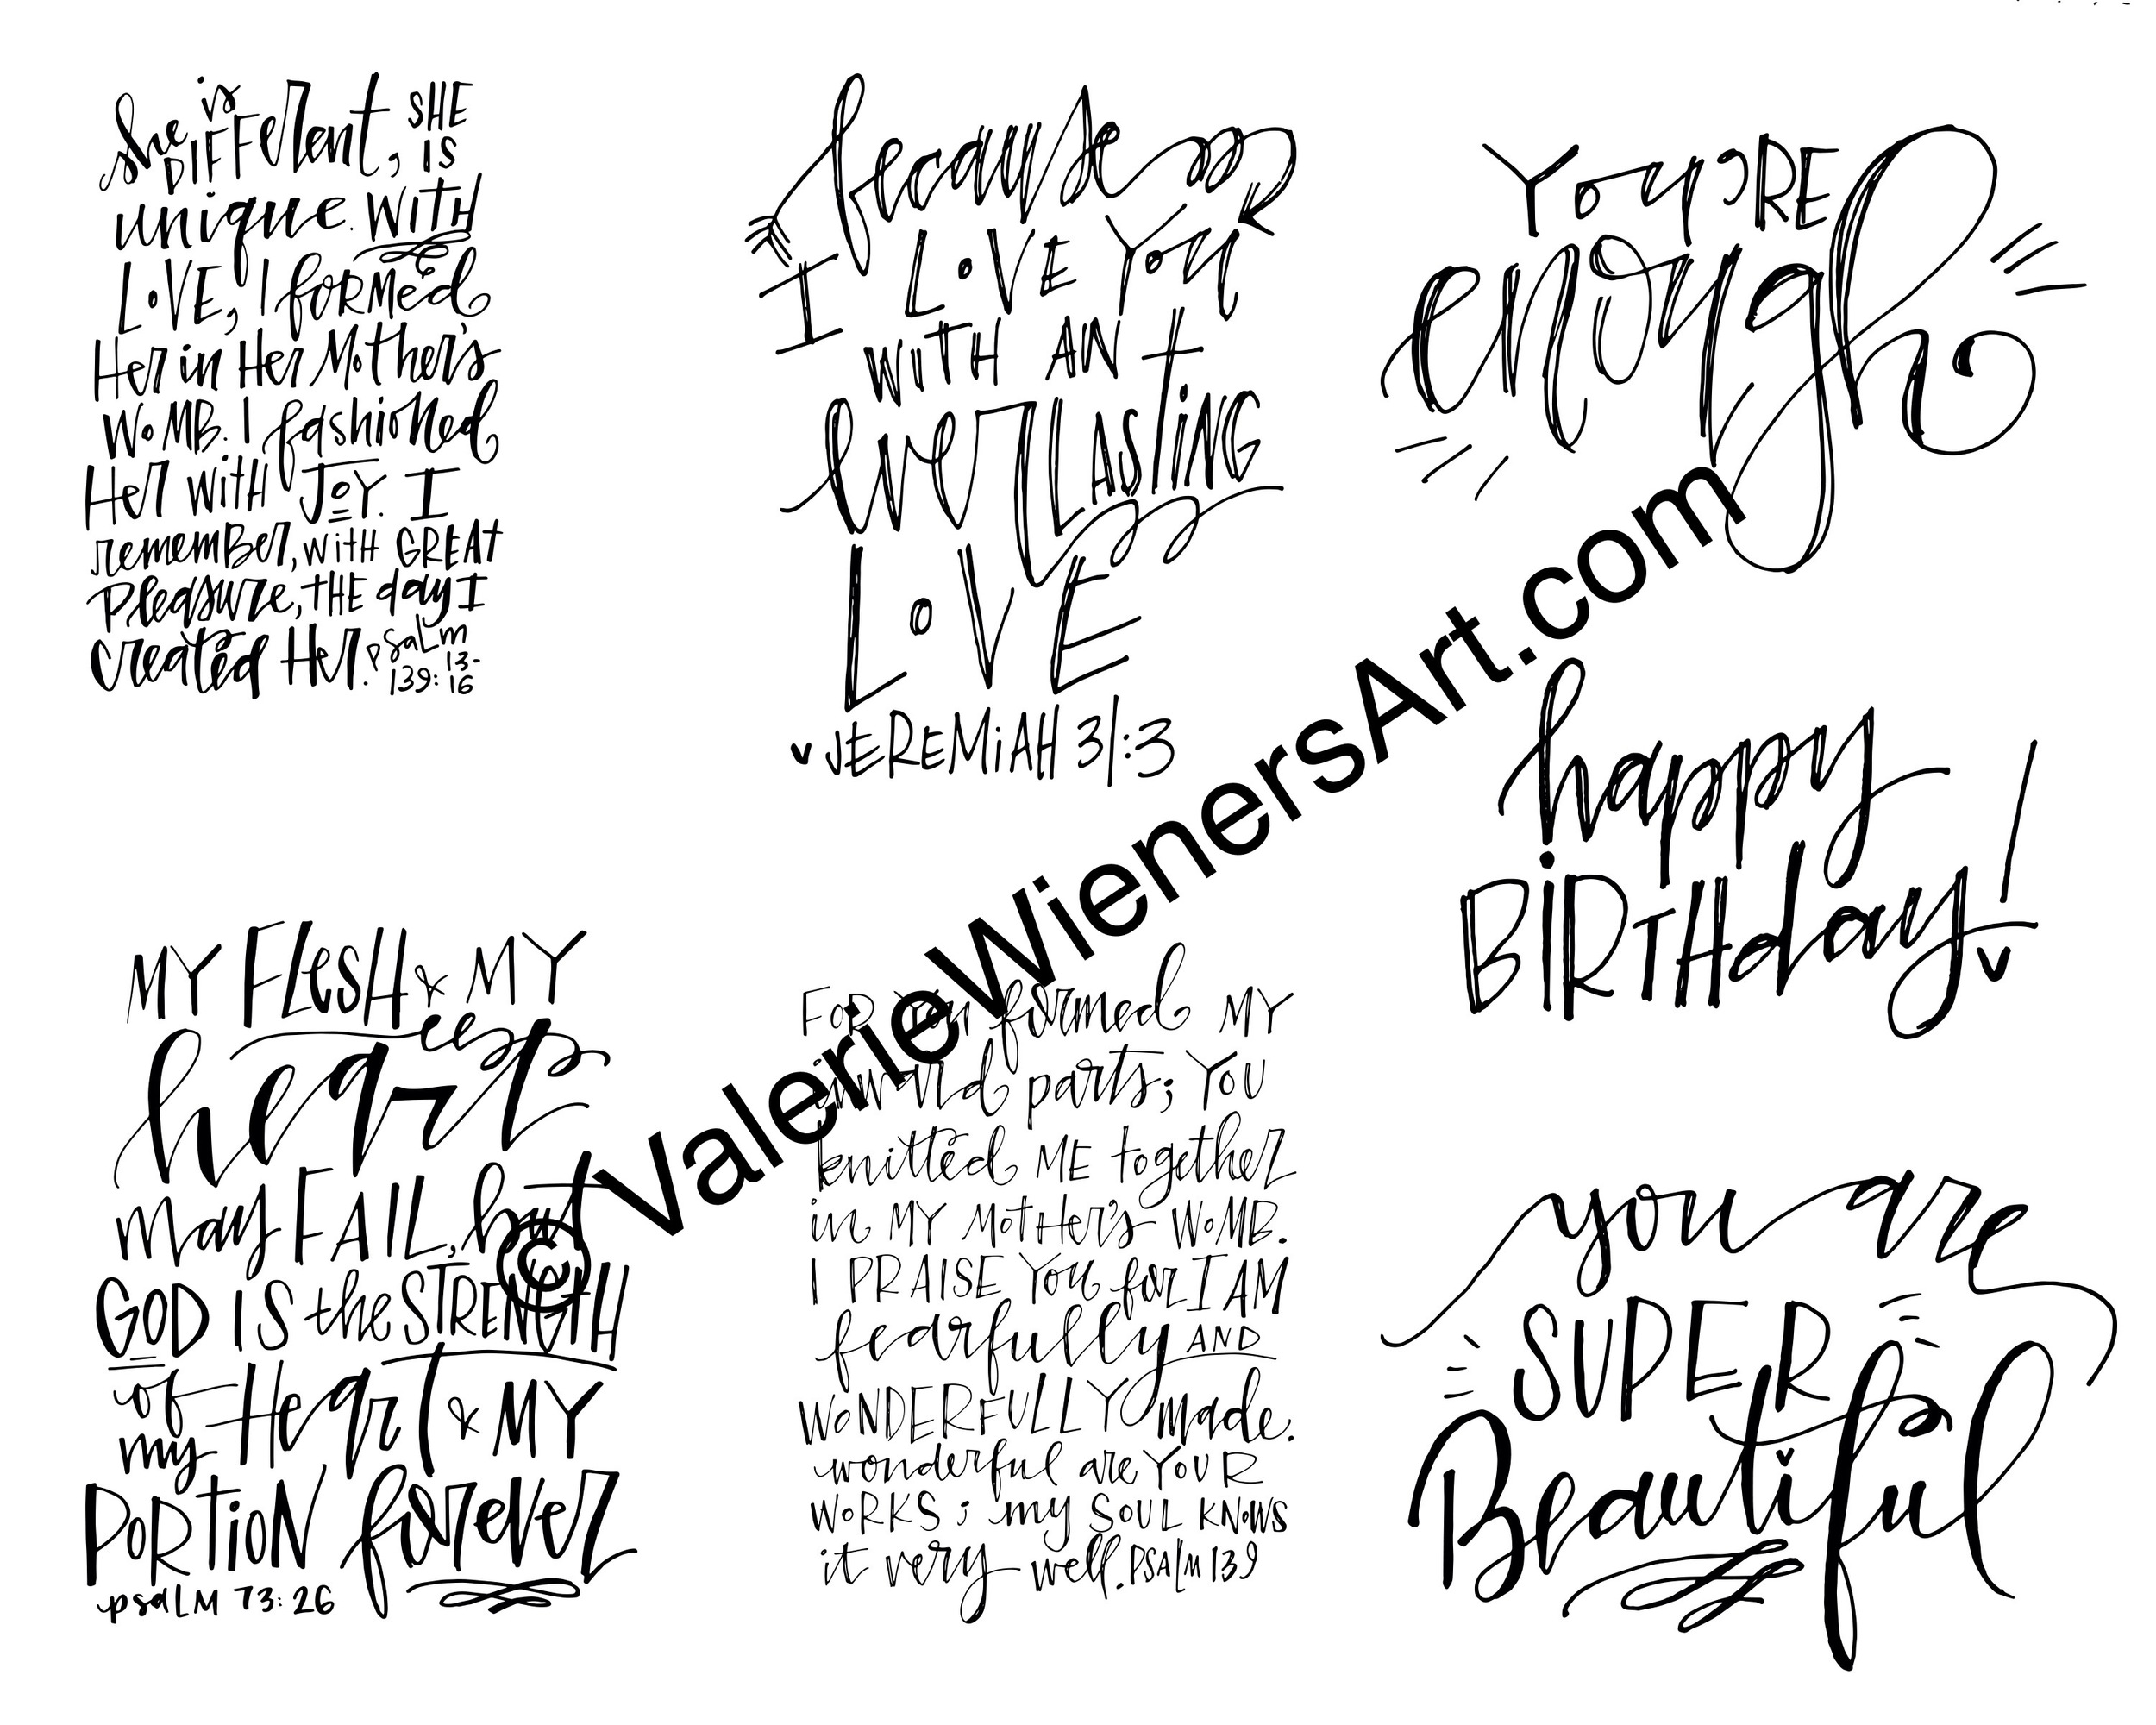 She is DIFFErent, SHE IS
unique. WITH
LOVE, I FORMed
Her in Her Mother's
WOMB. I fashioned
Her WITH JOY. I
remember, WiTH GREAT
Pleasure, THE day I
created Her. psaLm 139:13-16
I LOVE YOU
WiTH AN
EverLASTiNG
LOVE
JEREMiAH 31:3
YOU'RE
enough
happy
BiRTHday!
MY FLeSH & MY
heart
may FAIL, but
GOD IS the STRENGTH
of Heart & MY
my
PORTiON forever
psaLM 73:26
FOR You formed MY
inward parts; YOU
knitted ME together
in MY MotHer's WOMB.
I PRAISE You for I AM
fearfully AND
WONDERFULLY made.
wonderful are YOUR
WORKS; my SOUL KNOWS
it very well. PSALM 139
you are
SUPER
Beautiful
© ValerieWienersArt.com